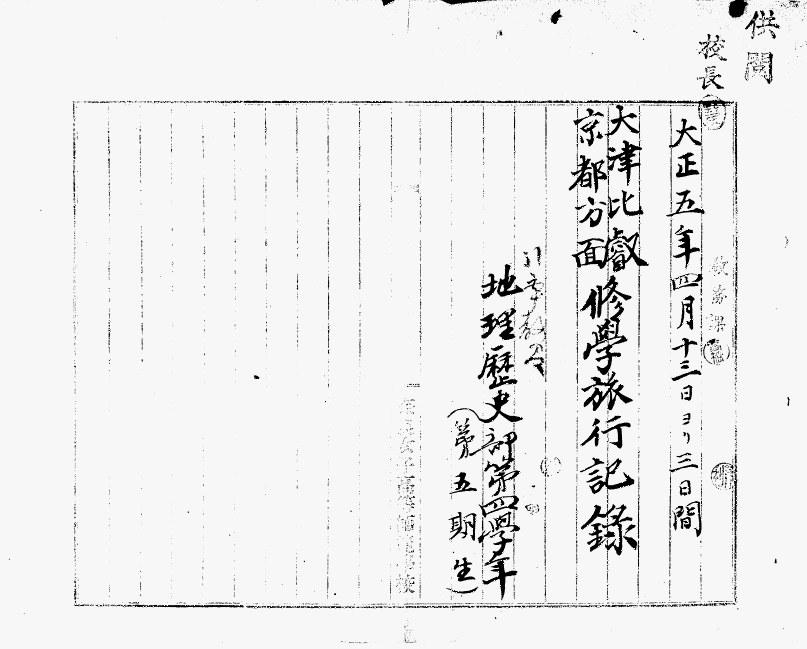 供閲
校長
大正五年四月十三日ヨリ三日間
教務課
大津比叡
京都方面
修學旅行記録
地理歴史部第四學年
(第五期生)
奈良女子高等師範學校